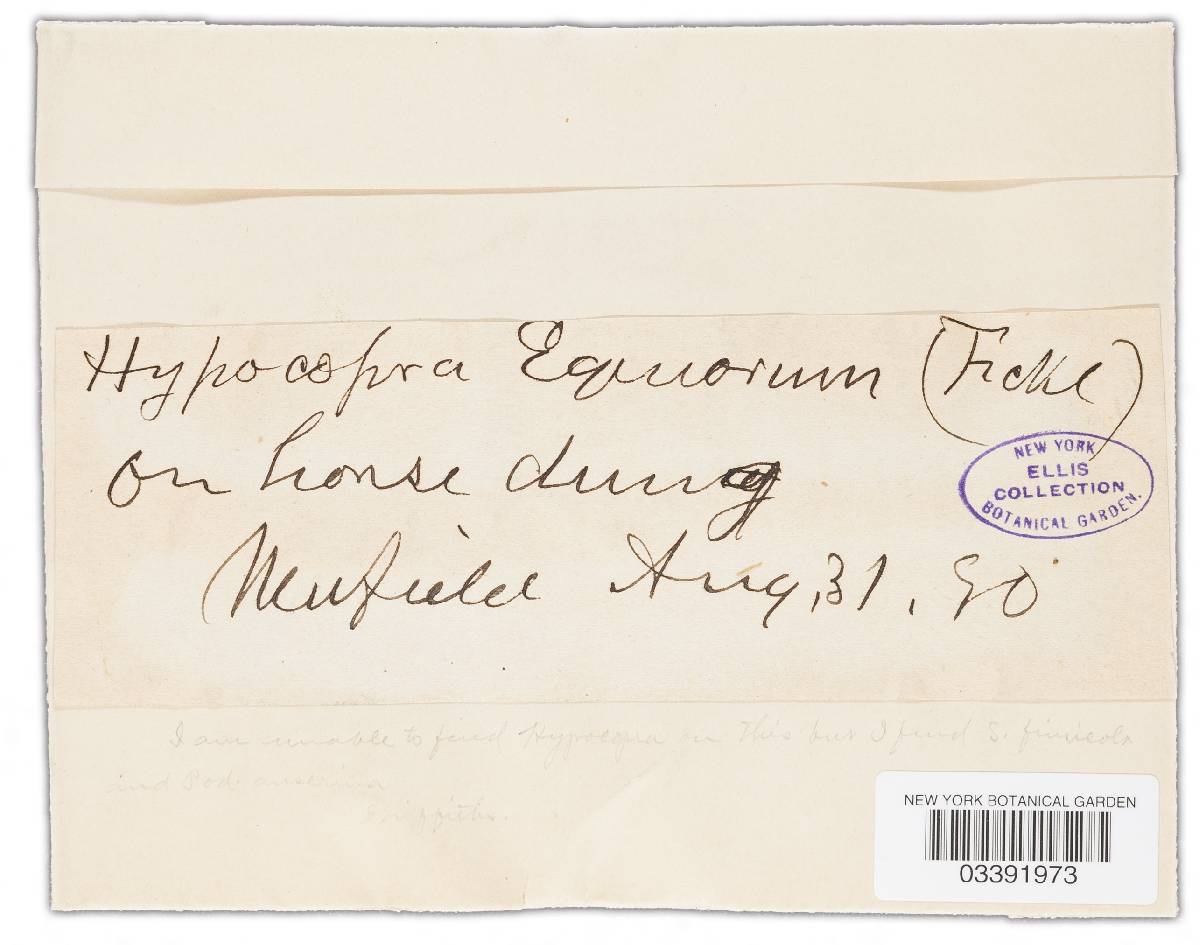 Hypocopra Equorum (Fckl)
on horse dung
Newfield Aug, 31, 90
NEW YORK
ELLIS
COLLECTION
BOTANICAL GARDEN.
I am unable to find Hypocopra on this but I find S. fimicola
and Pod. anserina
Griffiths.
NEW YORK BOTANICAL GARDEN
03391973